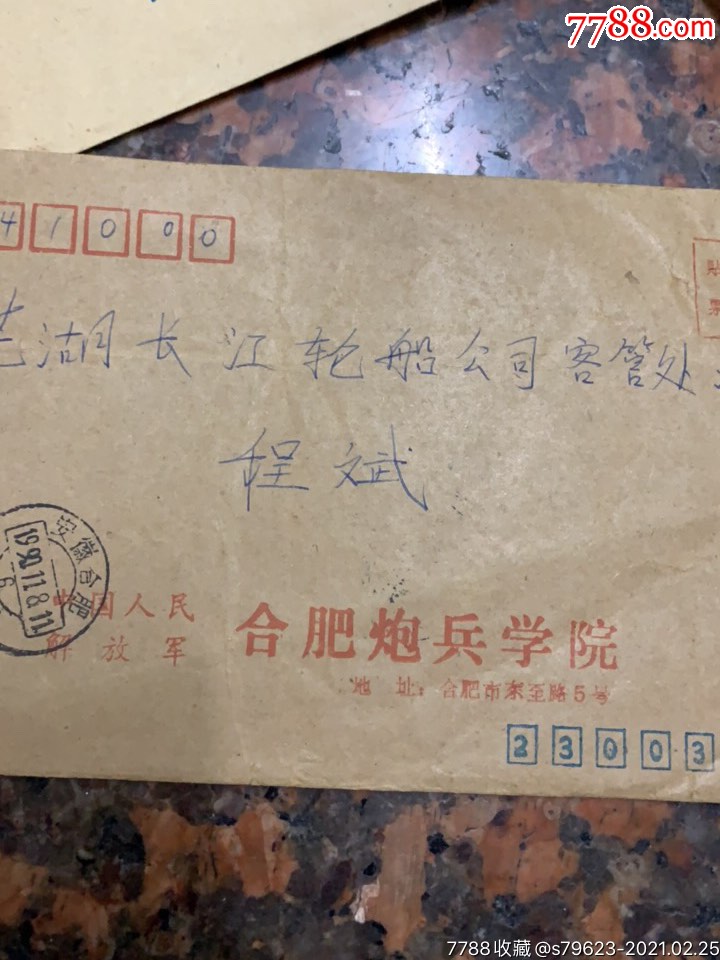 7788.com
41000
芜湖长江轮船公司客管处
程斌
安徽合肥
1990.11.8.11
中国人民
解放军
合肥炮兵学院
地 址：合肥市东至路5号
23003
7788收藏@s79623-2021.02.25